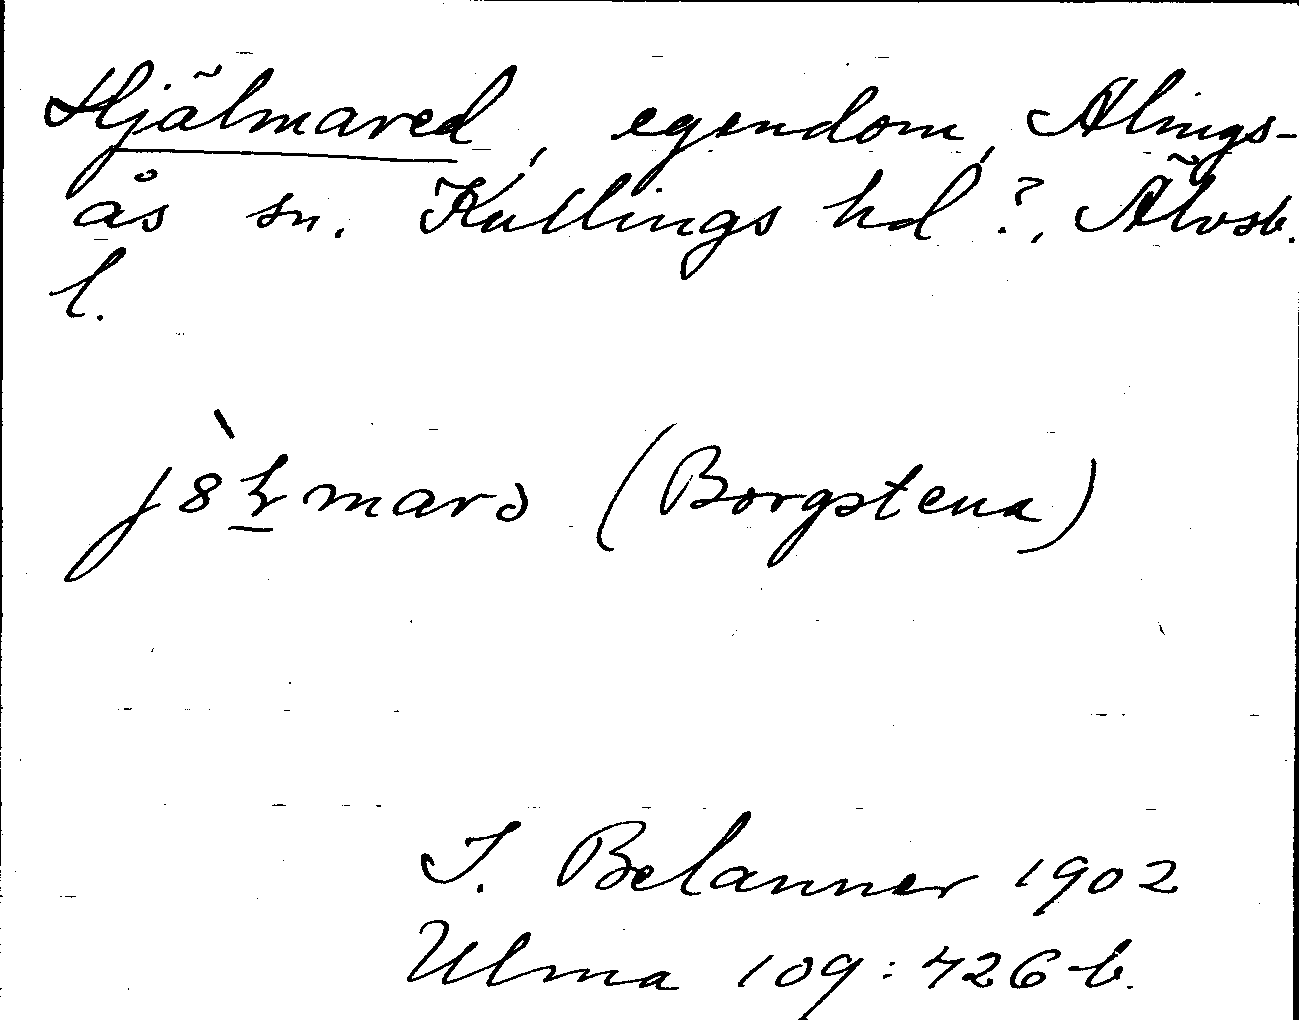 Hjälmared, egendom, Alings-
ås sn. Kullings hd?, Älvsb.
l.
(Borgstena)
J. Belanner 1902
Ulma 109:426 b.